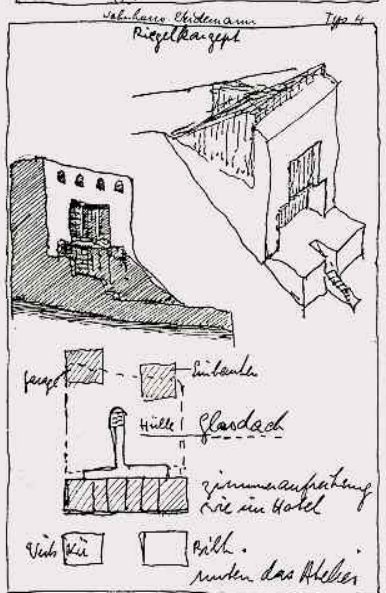 Wohnhaus Weidemann Typ 4
Riegelkonzept
garage
Einbauten
Hülle Glasdach
Zimmeraufreihung
wie im Hotel
Kü
Bibl.
unten das Atelier